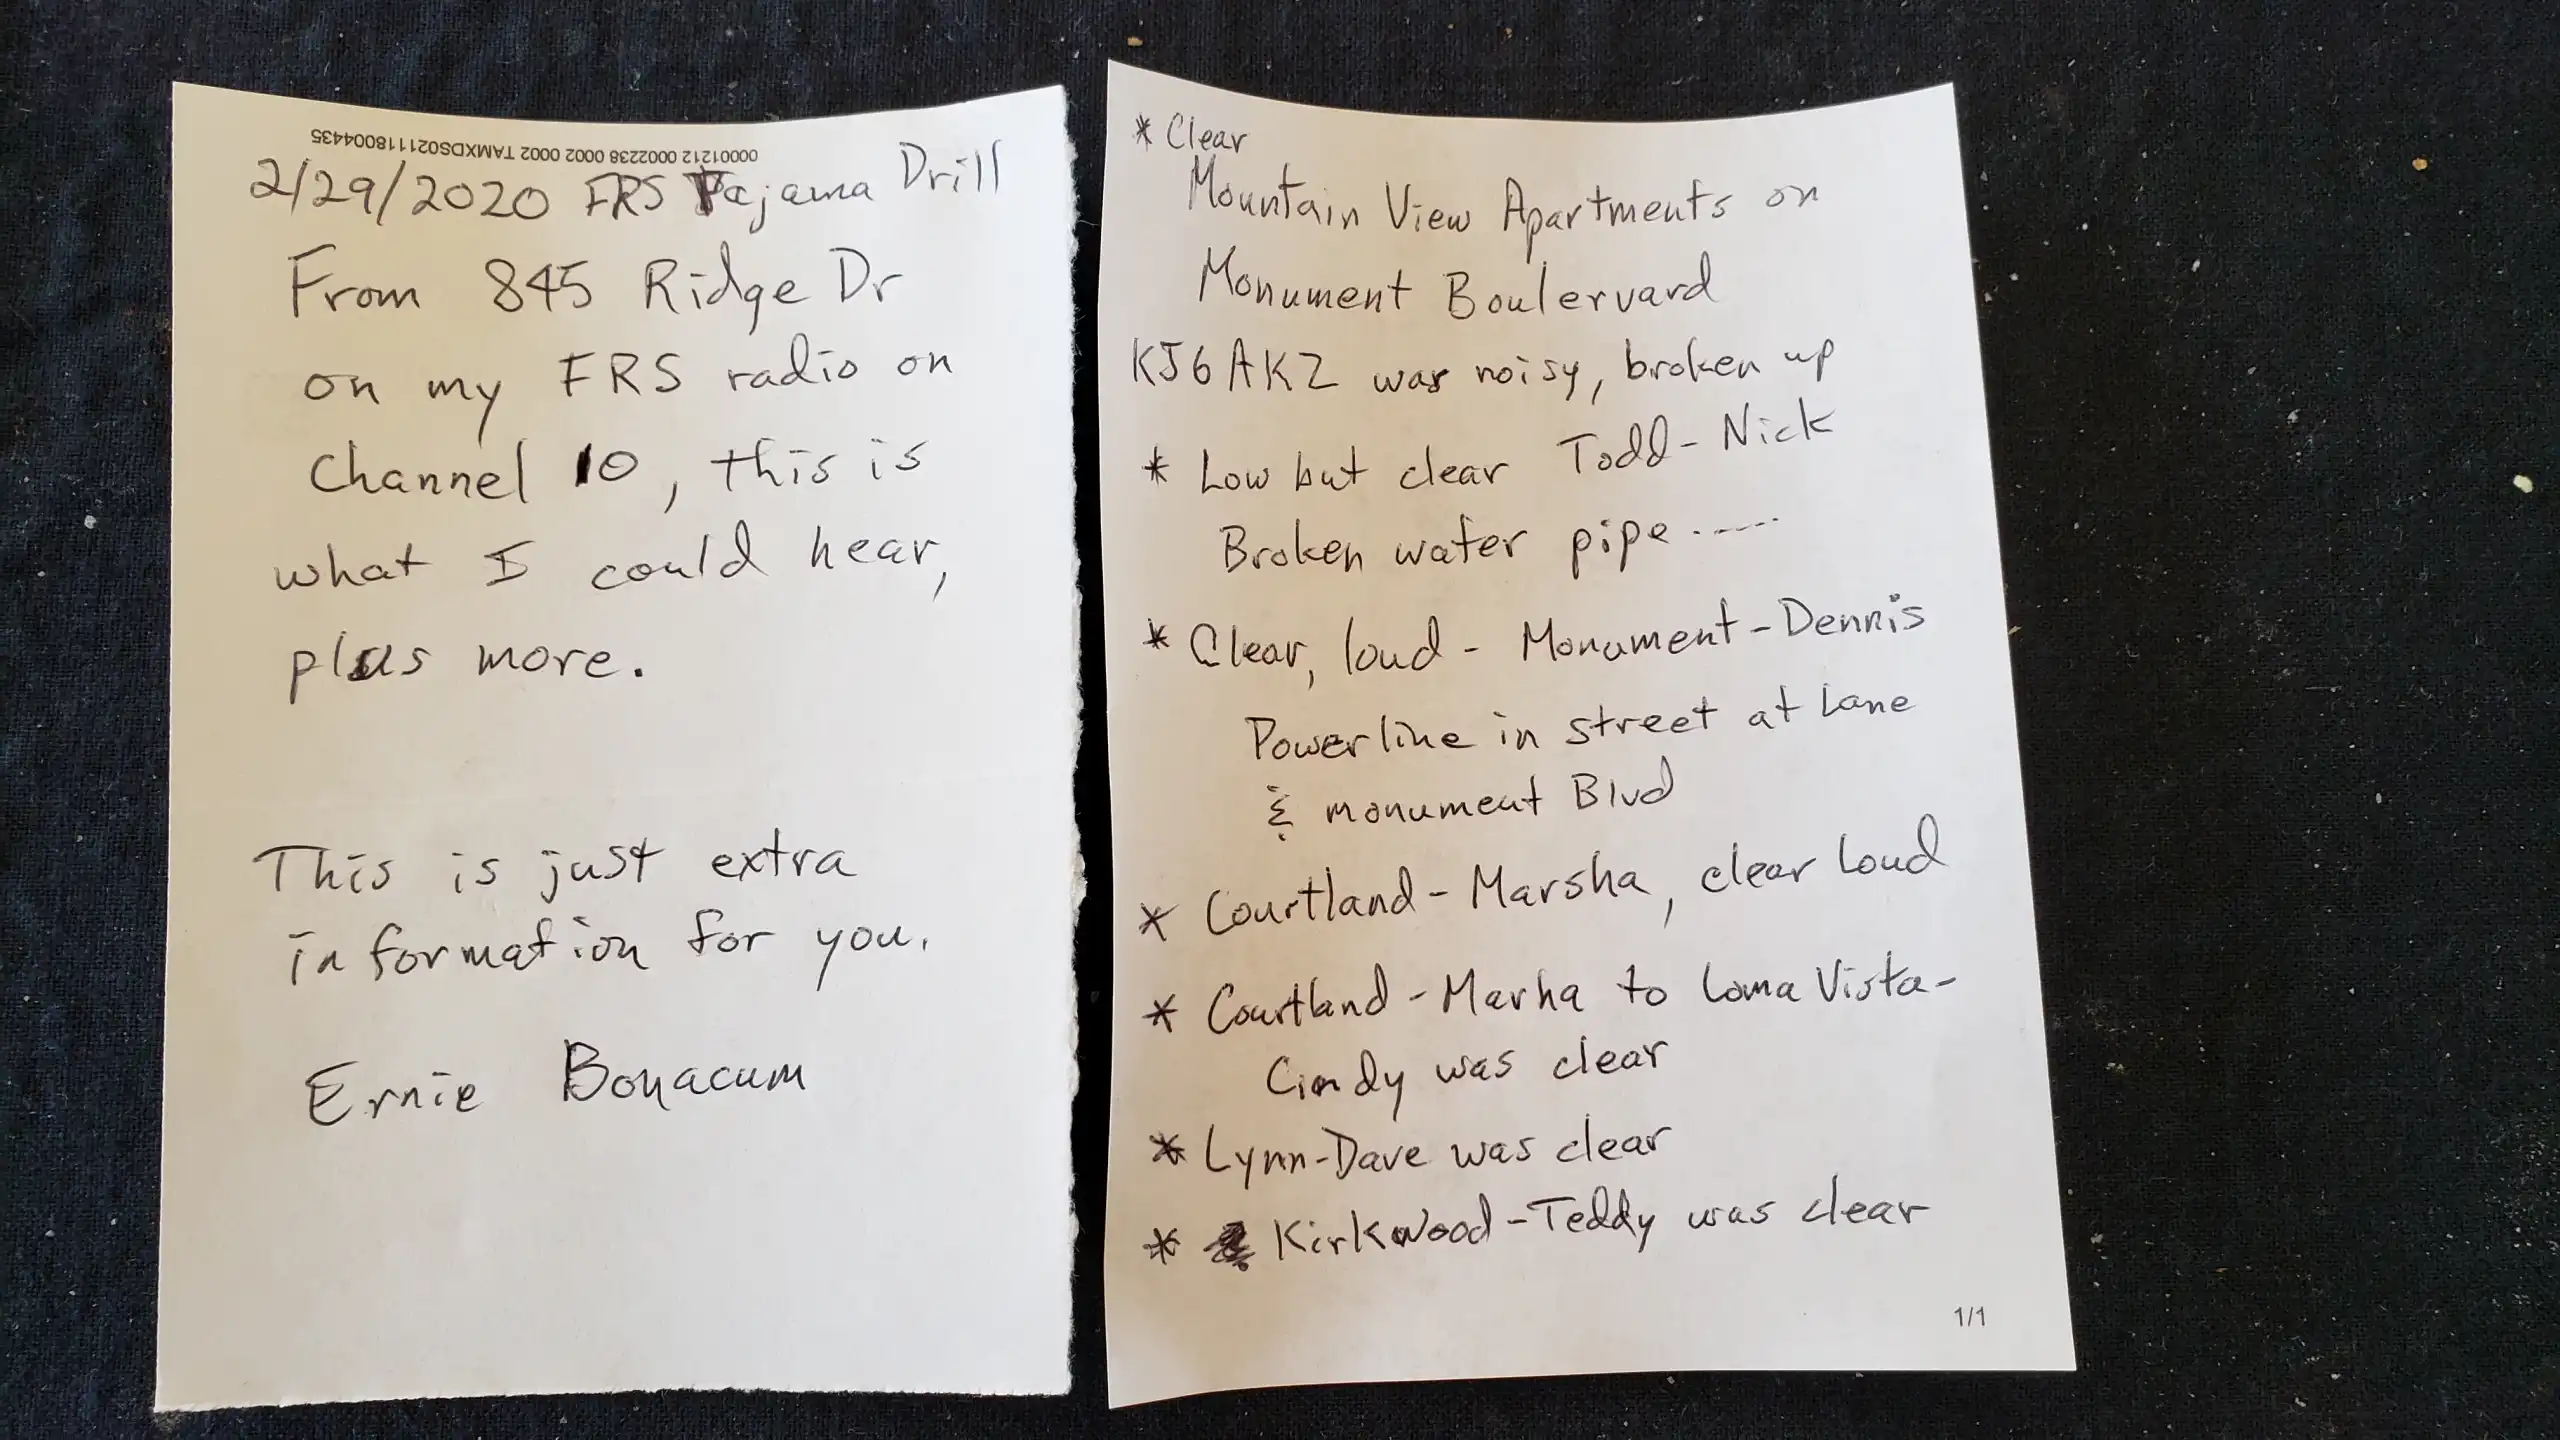 00001212 0002238 0002 0002 TAMXDS021118004435
2/29/2020 FRS Pajama Drill
From 845 Ridge Dr
on my FRS radio on
Channel 10, this is
what I could hear,
plus more.
This is just extra
information for you.
Ernie Bonacum
* Clear
Mountain View Apartments on
Monument Boulervard
KJ6AKZ was noisy, broken up
* Low but clear Todd - Nick
Broken water pipe .----
* Clear, loud - Monument - Dennis
Powerline in street at Lane
& monument Blvd
* Courtland - Marsha, clear Loud
* Courtland - Marha to Loma Vista -
Cindy was clear
* Lynn - Dave was clear
* Kirkwood - Teddy was clear
1/1